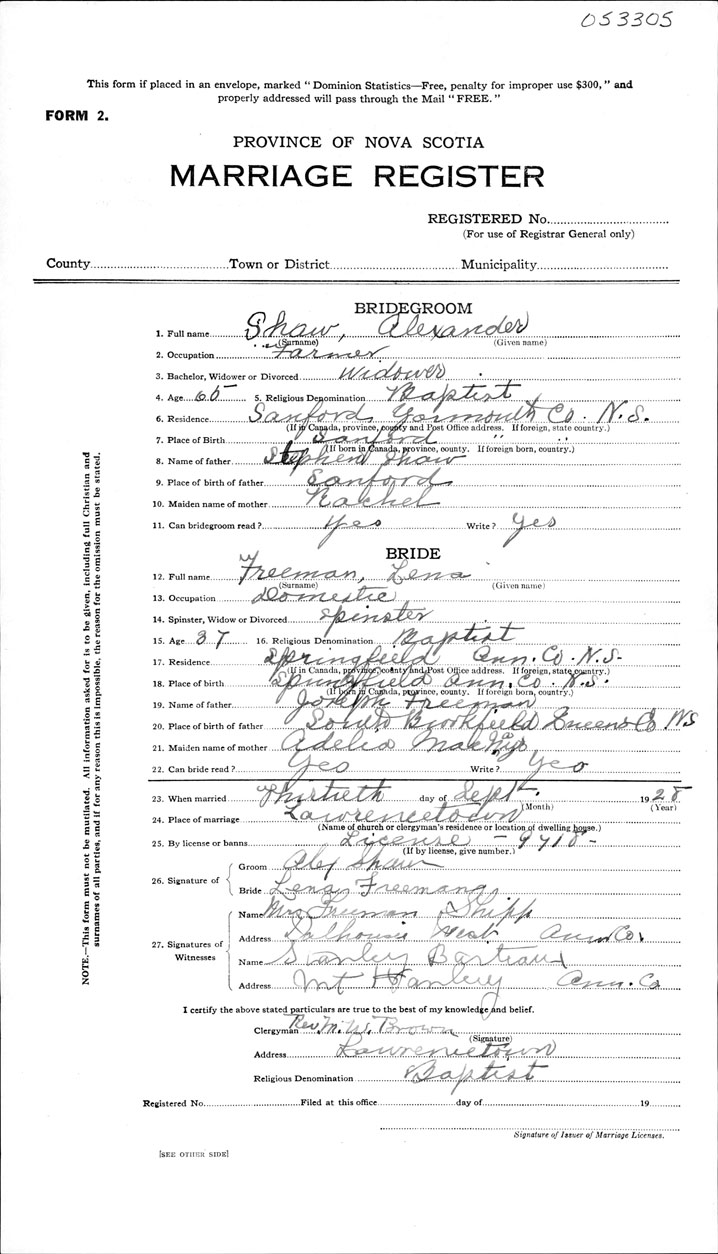 053305
This form if placed in an envelope, marked "Dominion Statistics—Free, penalty for improper use $300," and
properly addressed will pass through the Mail "FREE."
FORM 2.
PROVINCE OF NOVA SCOTIA
MARRIAGE REGISTER
REGISTERED No.
(For use of Registrar General only)
County Town or District Municipality
BRIDEGROOM
1. Full name Shaw, Alexander
(Surname) (Given name)
2. Occupation Farmer
3. Bachelor, Widower or Divorced Widower
4. Age 65 5. Religious Denomination Baptist
6. Residence Sanford Yarmouth Co. N.S.
(If in Canada, province, county and Post Office address. If foreign, state country.)
7. Place of Birth Sanford " "
(If born in Canada, province, county. If foreign born, country.)
8. Name of father Stephen Shaw
9. Place of birth of father Sanford
10. Maiden name of mother Rachel
11. Can bridegroom read? Yes Write? Yes
BRIDE
12. Full name Freeman, Lena
(Surname) (Given name)
13. Occupation Domestic
14. Spinster, Widow or Divorced Spinster
15. Age 37 16. Religious Denomination Baptist
17. Residence Springfield Ann. Co. N.S.
(If in Canada, province, county and Post Office address. If foreign, state country.)
18. Place of birth Springfield Ann. Co. N.S.
(If born in Canada, province, county. If foreign born, country.)
19. Name of father Joseph Freeman
20. Place of birth of father South Brookfield Queens Co. NS
21. Maiden name of mother Adelia
22. Can bride read? Yes Write? Yes
23. When married Thirtieth day of Sept. 1928
(Month) (Year)
24. Place of marriage Lawrencetown
(Name of church or clergyman's residence or location of dwelling house.)
25. By license or banns License - 9718 -
(If by license, give number.)
26. Signature of
Groom Alex Shaw
Bride Lena Freeman
27. Signatures of Witnesses
Name Mrs Freeman Shipp
Address Dalhousie West Ann Co.
Name Stanley Barteaux
Address Mt Hanley Ann. Co
I certify the above stated particulars are true to the best of my knowledge and belief.
Clergyman Rev. M. W. Brown
(Signature)
Address Lawrencetown
Religious Denomination Baptist
Registered No. Filed at this office day of 19
Signature of Issuer of Marriage Licenses.
[SEE OTHER SIDE]
NOTE.—This form must not be mutilated. All information asked for is to be given, including full Christian and
surnames of all parties, and if for any reason this is impossible, the reason for the omission must be stated.